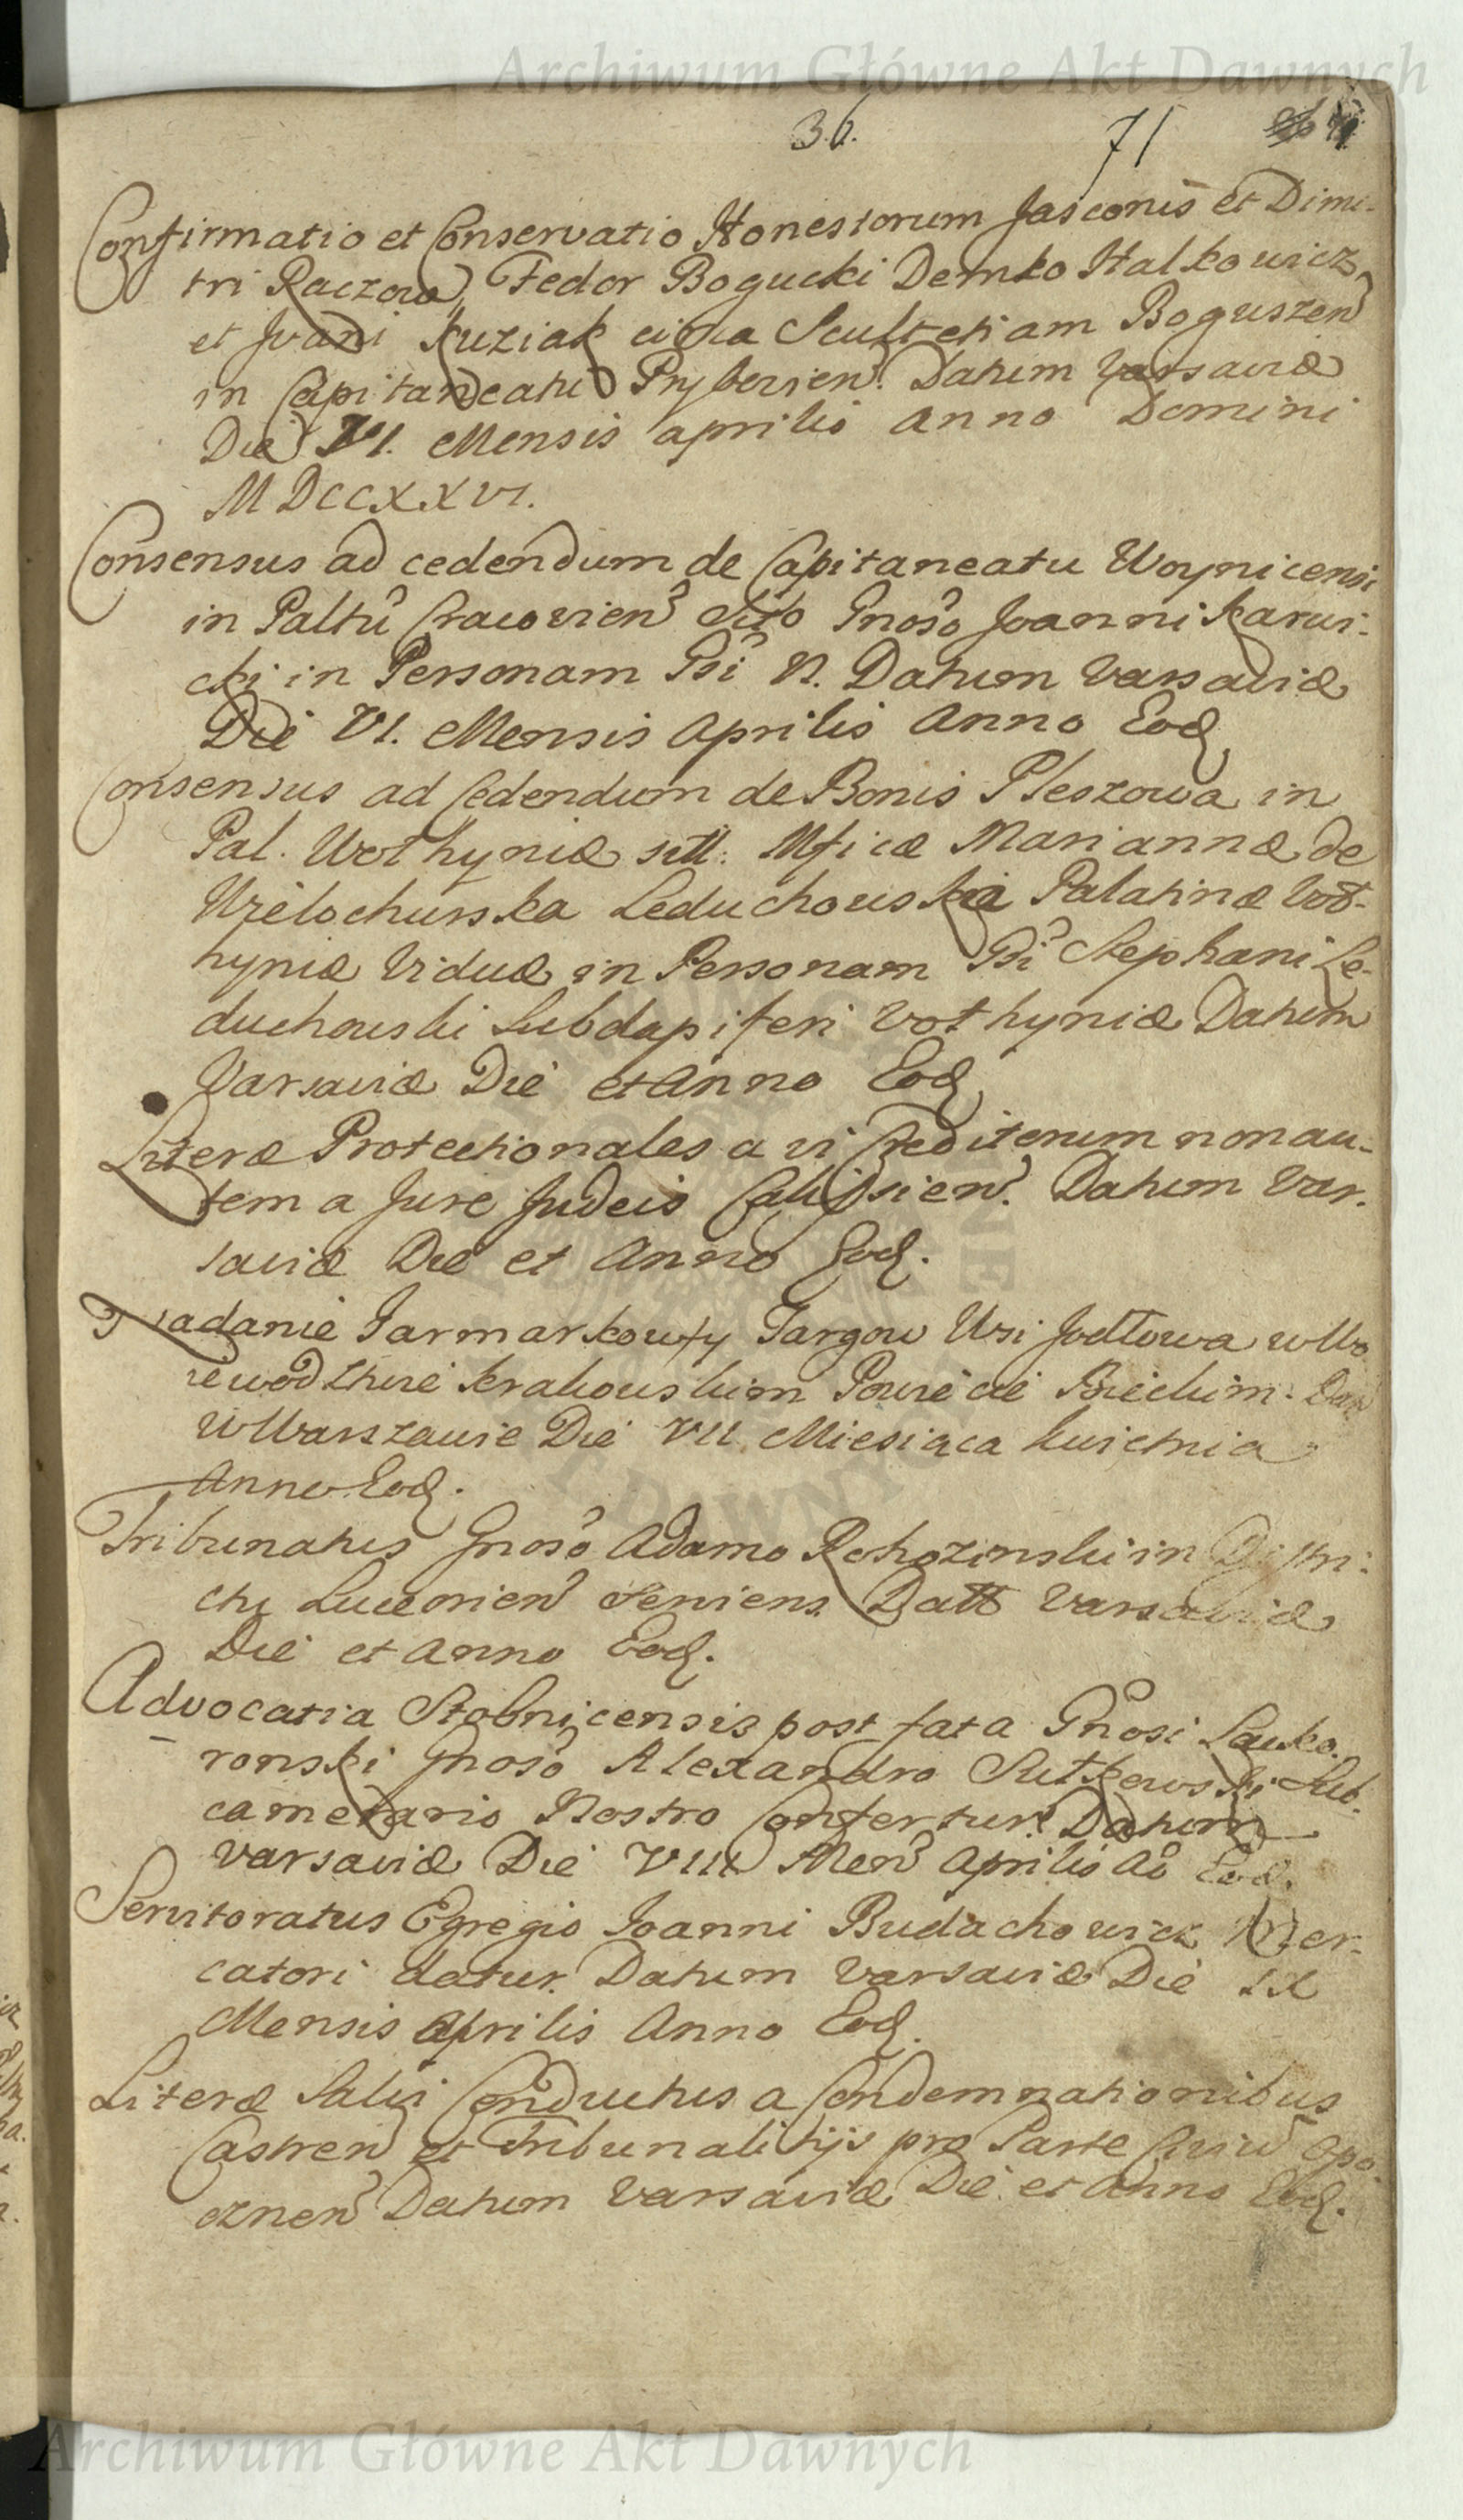 Archiwum Główne Akt Dawnych
36. 71
Confirmatio et Conservatio Honestorum Jasconis et Dimi-
tri Raczowa, Fedor Bogucki Demko Halkowicz,
et Jvani Kuziak circa Scultetiam Boguszen
in Capitaneatu Pryberien. Datum Varsaviæ
Die VI. Mensis Aprilis Anno Domini
MDCCXXVI.
Consensus ad cedendum de Capitaneatu Woynicensi
in Palttu Cracovien Sito Gnoso Joanni Karwi-
cki in Personam Gsi N. Datum Varsaviæ
Die VI. Mensis Aprilis Anno Eod
Consensus ad Cedendum de Bonis Pleszowa in
Pal. Wolhyniæ sitt: Mficæ Mariannæ de
Wielochurska Leduchowska Palatinæ Vol-
hyniæ Viduæ in Personam Gsi Stephani Le-
duchowski Subdapiferi Volhyniæ Datum
Varsaviæ Die et Anno Eod
Literæ Protectionales a vi Creditorum non au-
tem a Jure Judæis Calissien. Datum Var-
saviæ Die et Anno Eod.
Nadanie Jarmarkow y Targow Wsi Jodłowa w Wo
iewodztwie Krakowskim Powiecie Bieckim. Dan
w Warszawie Die VII Miesiąca Kwietnia
Anno Eod.
Tribunatus Gnoso Adamo Rohozinski in Distri-
ctu Luceorien Serviens Datt Varsaviæ
Die et Anno Eod.
Advocatia Stobnicensis post fata Gnosi Lancko-
ronski Gnoso Alexandro Sutkowski Sub-
camerario Nostro Confertur. Datum
Varsaviæ Die VIII Men Aprilis Ao Eod.
Servitoratus Egregio Joanni Budachowicz Mer-
catori datur. Datum Varsaviæ Die IX
Mensis Aprilis Anno Eod.
Literæ Salvi Conductus a Condemnationibus
Castren et Tribunalitijs pro Parte Civiu Opo-
cznen Datum Varsaviæ Die et Anno Eod.
Archiwum Główne Akt Dawnych